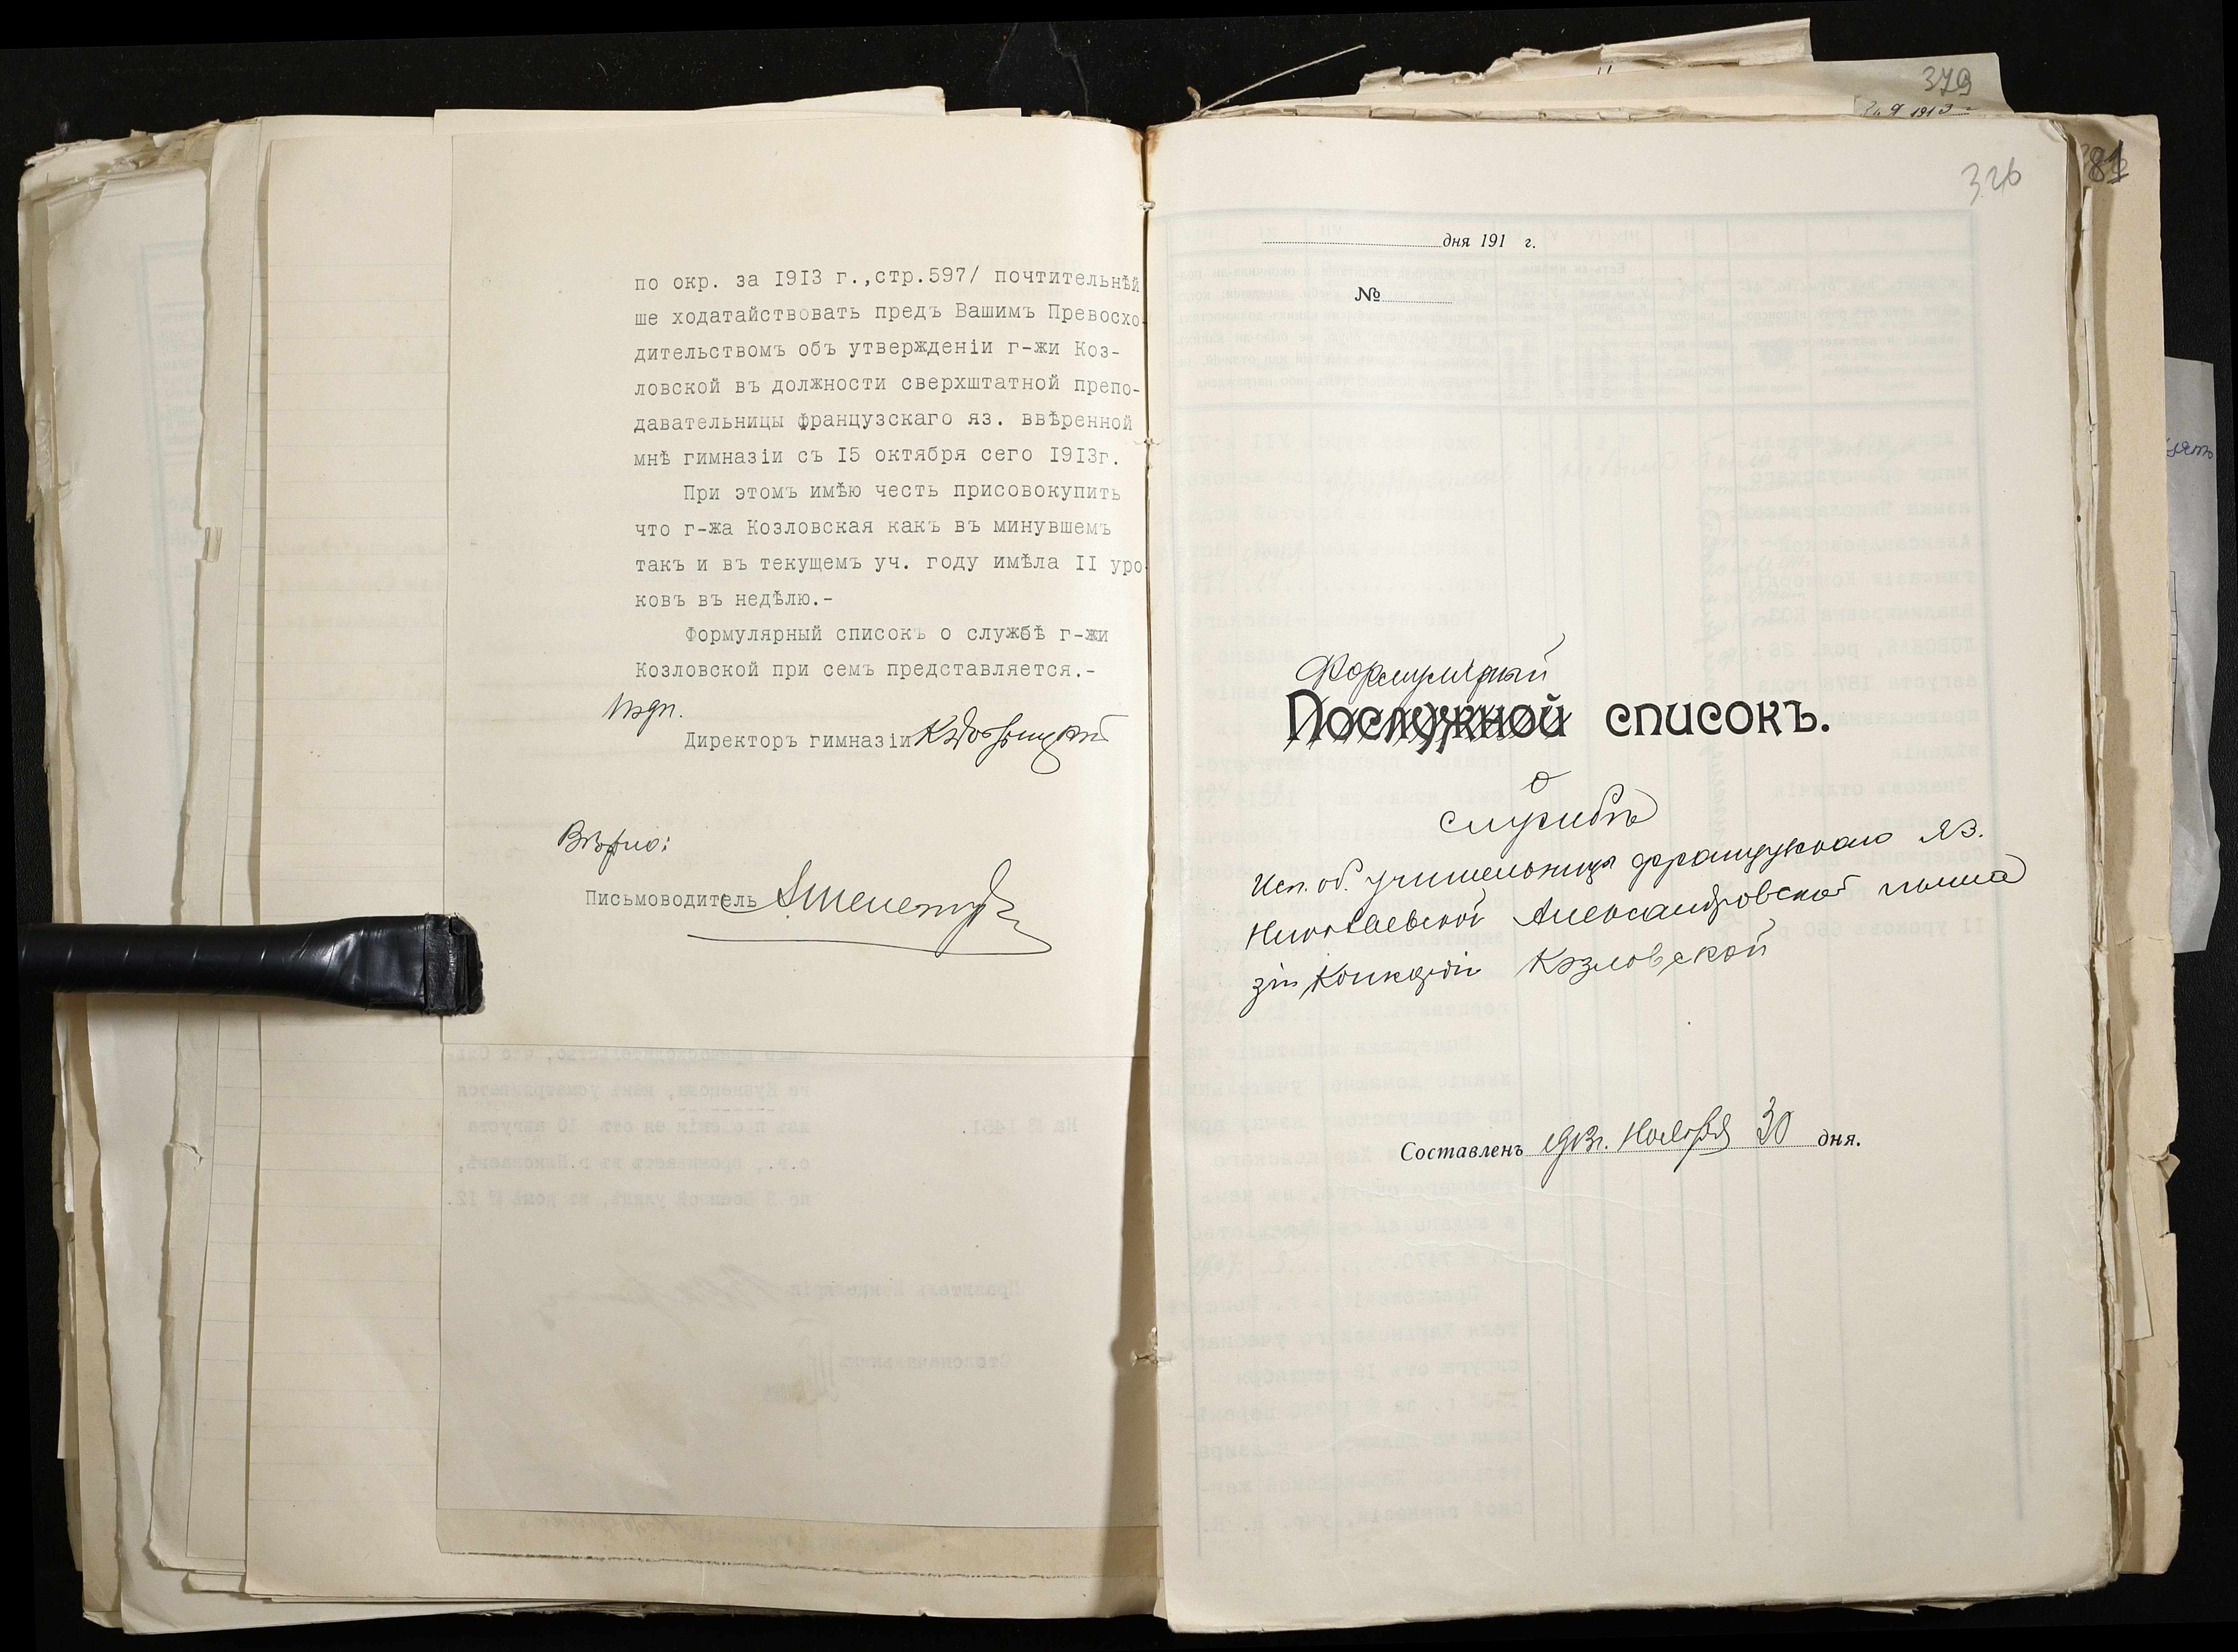 по окр. за 1913 г.,стр.597/ почтительнѣй
ше ходатайствовать предъ Вашимъ Превосхо-
дительствомъ объ утвержденіи г-жи Коз-
ловской въ должности сверхштатной препо-
давательницы французскаго яз. ввѣренной
мнѣ гимназіи съ 15 октября сего 1913г.
При этомъ имѣю честь присовокупить
что г-жа Козловская какъ въ минувшемъ
такъ и въ текущемъ уч. году имѣла II уро
ковъ въ недѣлю.-
Формулярный списокъ о службѣ г-жи
Козловской при семъ представляется.-
Подп.
Директоръ гимназіи
Вѣрно:
Письмоводитель
379
81
326
дня 191 г.
№
Формулярный
Послужной списокъ.
о
службѣ
Исп. об. учительницы французскаго яз.
Николаевской Александровской гимна
зіи Конкордіи Козловской
Составленъ 1913г. Ноября 30 дня.